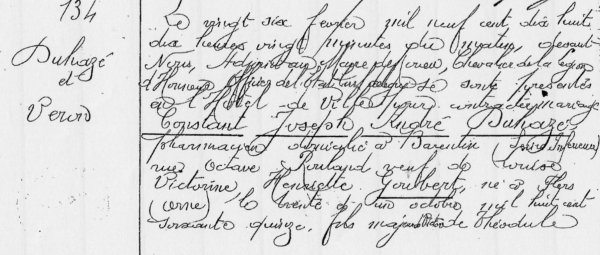 134
Duhazé
et
Le vingt six février mil neuf cent dix huit
dix heures vingt minutes du matin, devant
Nous, Maire de chevalier de la Légion
d'Honneur, Officier de l'État civil se sont présentés
en l'Hôtel de Ville pour contracter mariage
Constant Joseph André Duhazé
pharmacien domicilié à Barentin (Seine Inférieure)
rue Octave Rouland veuf de Louise
Victorine Henriette Goulbert, né à Flers
(orne) le trente et un octobre mil huit cent
soixante quinze, fils majeur de Théodule